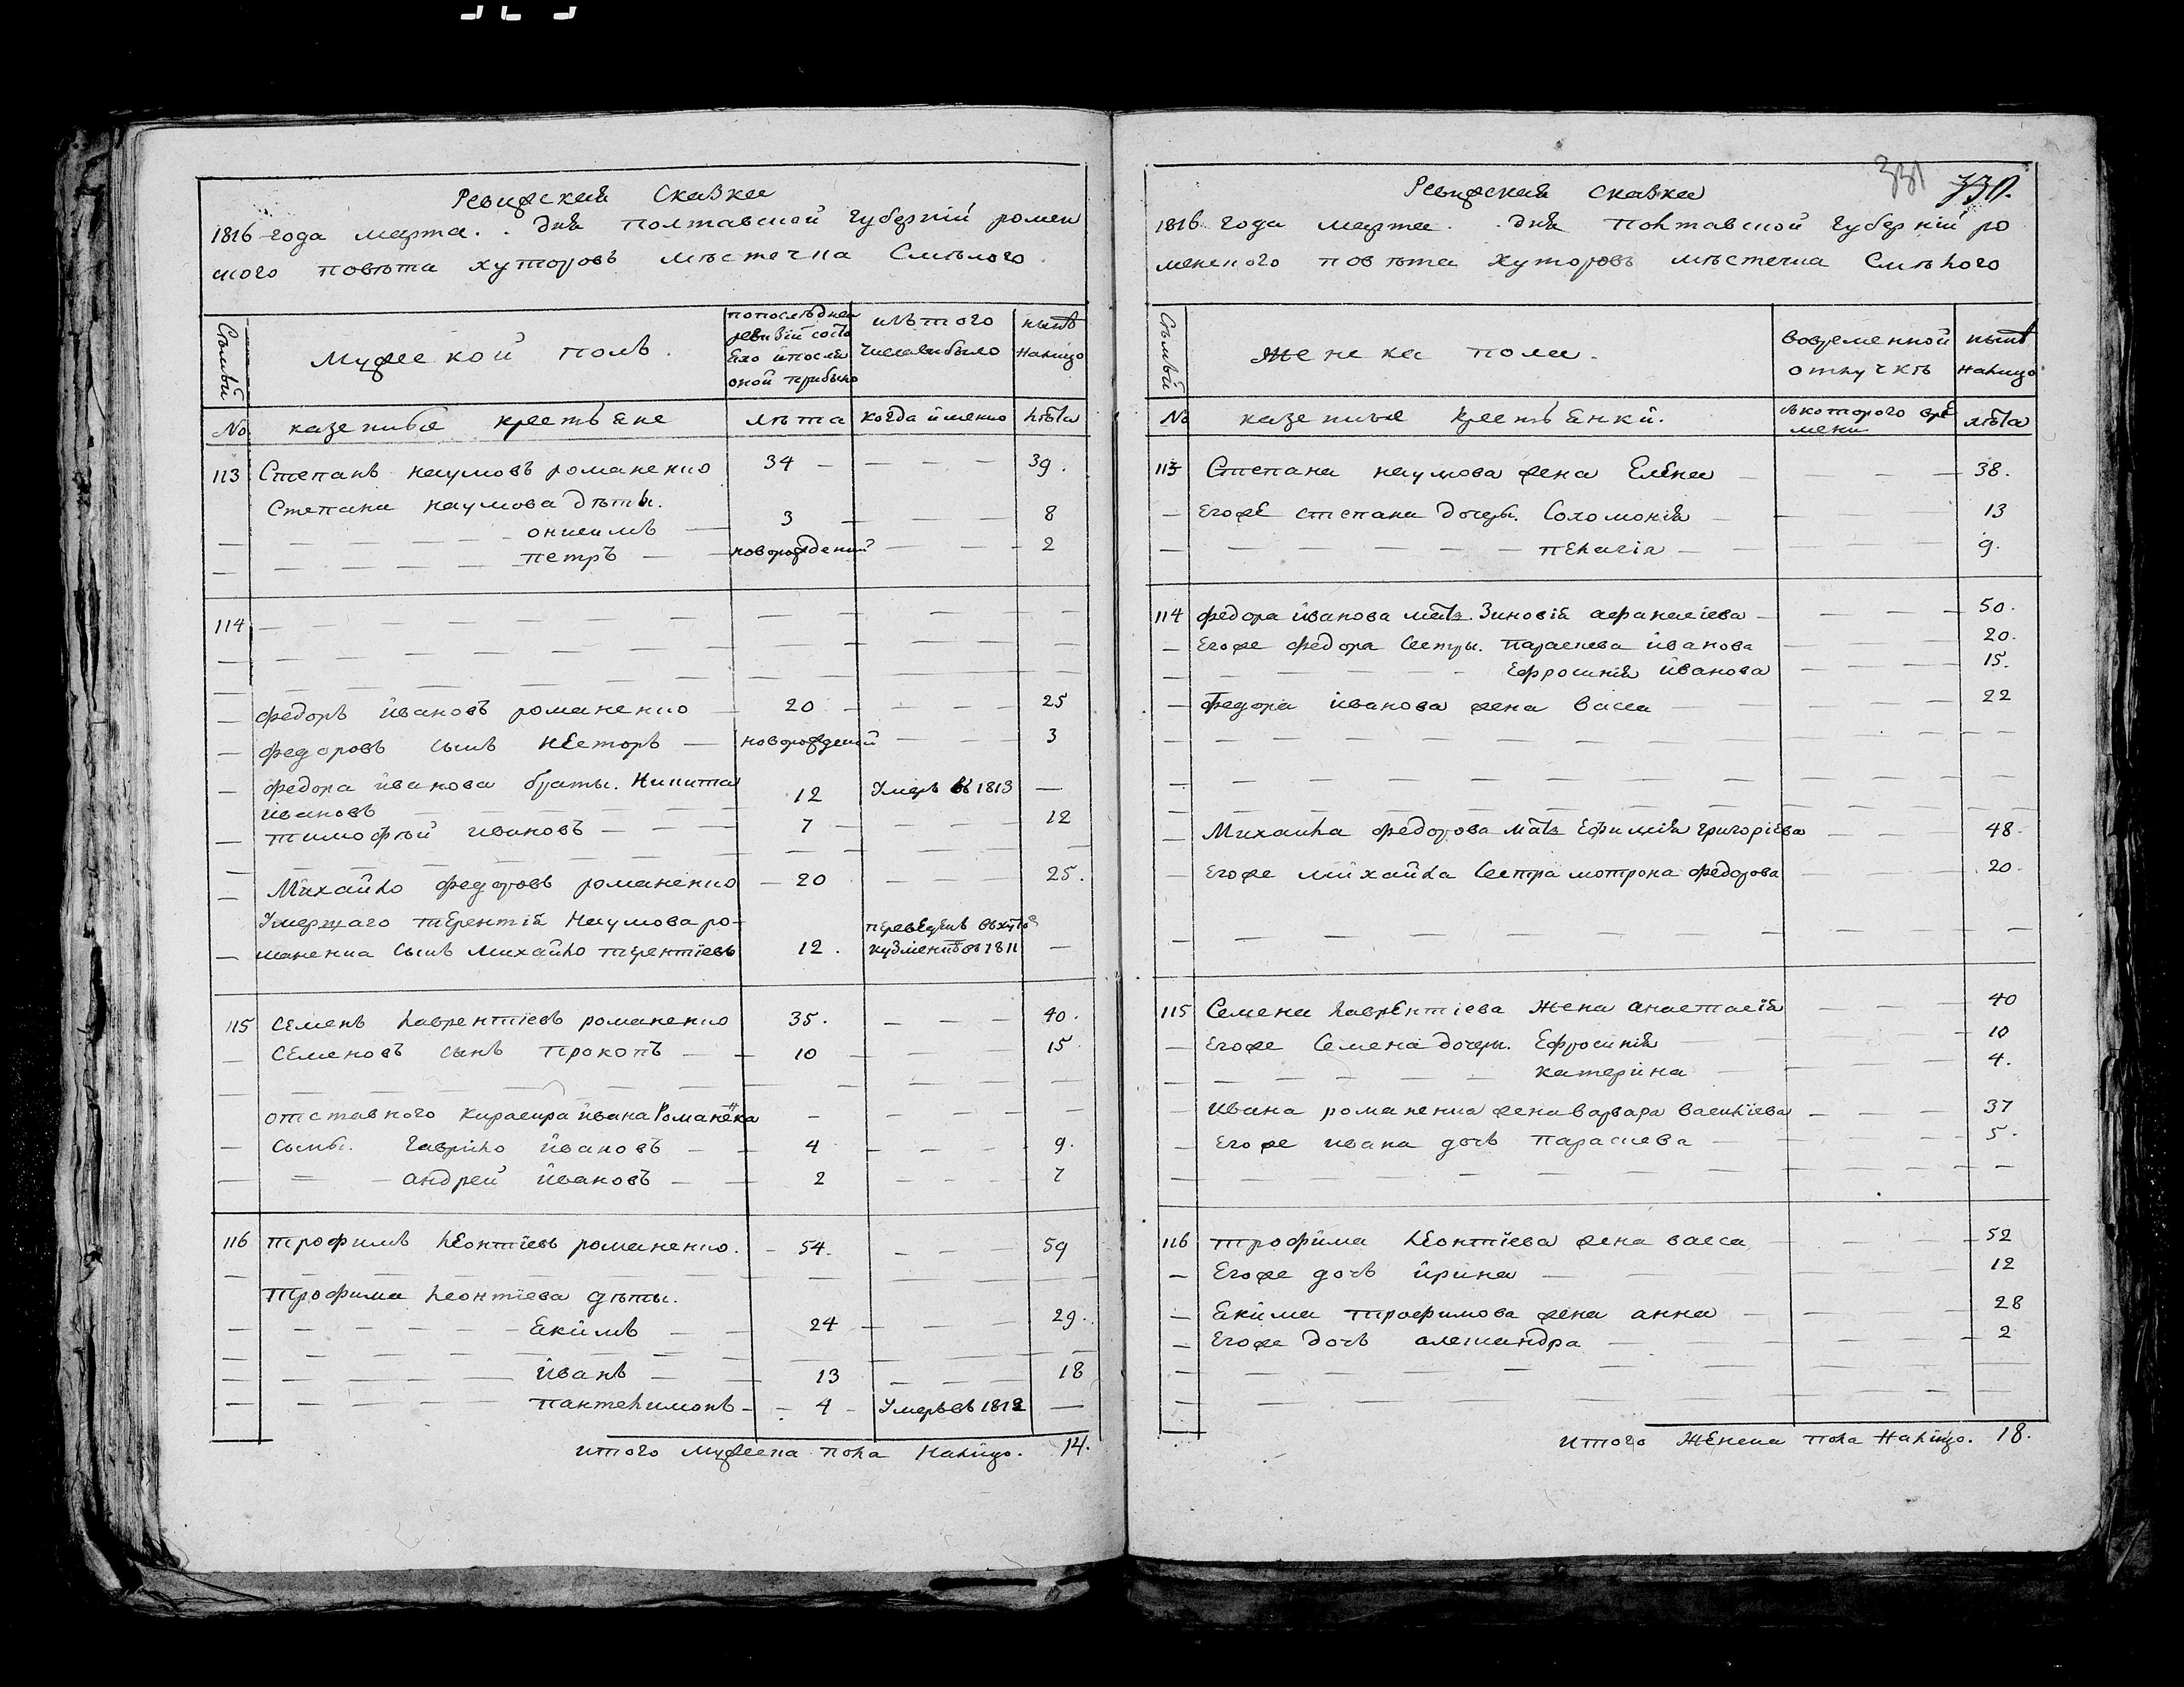 Ревизская Сказка
1816 года марта . . дня Полтавской губернїи ромен
ского повѣта хуторовъ мѣстечка Смѣлого
Семьи
Мужеской полъ.
попослѣдней ревизїи состояло ипослѣ оной прибыло
изътого числа выбыло
нынѣ налицо
№ казенные крестьяне лѣта когда имянно лѣта
113 Степанъ наумовъ романенко 34 — — — 39.
Степана наумова дѣты.
— онисимъ — 3 — — 8
— петръ — новорожденый — — 2
114 — — — — —
— — — — —
— — — — —
— федоръ ївановъ романенко — 20 — — — 25
— федоровъ сынъ нЕсторъ — новорожденый — — 3
— федора їванова браты. Никита
ївановъ 12 Умеръ въ 1813 —
— тимофѣй ивановъ — — — 7 — — — 12
— — — — —
— Михайло федоровъ романенко — 20 — — — 25.
Умершаго терентїя Наумова ро-
— маненка сынъ михайло терентїевъ 12. переведенъ въхуторъ кузменковъ въ 1811 —
115 Семенъ лаврентїевъ романенко 35. — — — 40.
— Семеновъ сынъ Прокопъ — — 10 — — — 15
— — — — —
отставного кирасира їванаРоманенка — — — —
— сыны. гаврило ївановъ — — 4 — — — 9.
— — — андрей ївановъ — — 2 — — — 7
116 трофимъ лЕонтїевъ романенко. — 54. — — — 59
— — — — —
Трофима леонтїева дѣты.
— — Екимъ — — 24 — — — 29.
— — — — —
— — їванъ — — 13 — — 18
— — пантелимонъ — — 4 — Умеръ въ 1812 —
итого мужеска пола Налицо. 14.
331 330.
Ревизская сказка
1816 года марта . . дня Полтавской губернїи ро
менского повѣта хуторовъ мѣстечка Смѣлого
Семьи
женска пола.
вовременной отлучкѣ
нынѣ налицо
№ казенные крестьянки. скоторого вре мени лѣта
113 Степана наумова жена Елена — — — — 38.
— Егоже степана дочеры. Соломонїя — — 13
— — — — пелагїя — — — — 9.
114 федора їванова мать Зиновїя афанасїева — — — — 50.
— Егоже федора Сестры. Параскева їванова — 20.
— — — — Ефросинїя їванова — — — — 15.
— федора їванова жена васса — — — — 22
— — — — —
— — — — —
— — — — —
— Михайла федорова мать ефимїя григорїева — — — 48.
— Егоже михайла Сестра мотрона федорова — — 20.
— — — — —
115 Семена лаврентїева Жена анастасїя — — — 40
— Егоже Семена дочеры. Ефросинїя — — 10
— — — — катерина — — — 4.
Ивана романенка женаварвара василїева — — — 37
— Егоже ивана дочъ параскева — — — 5.
— — — — —
116 трофима леонтїева жена васса — — — 52
— Егоже дочъ їрина — — — 12
— Екима трофимова жена анна — — — 28
— Егоже дочъ александра — — — 2
— — — — —
— — — — —
итого Женска пола налицо. 18.